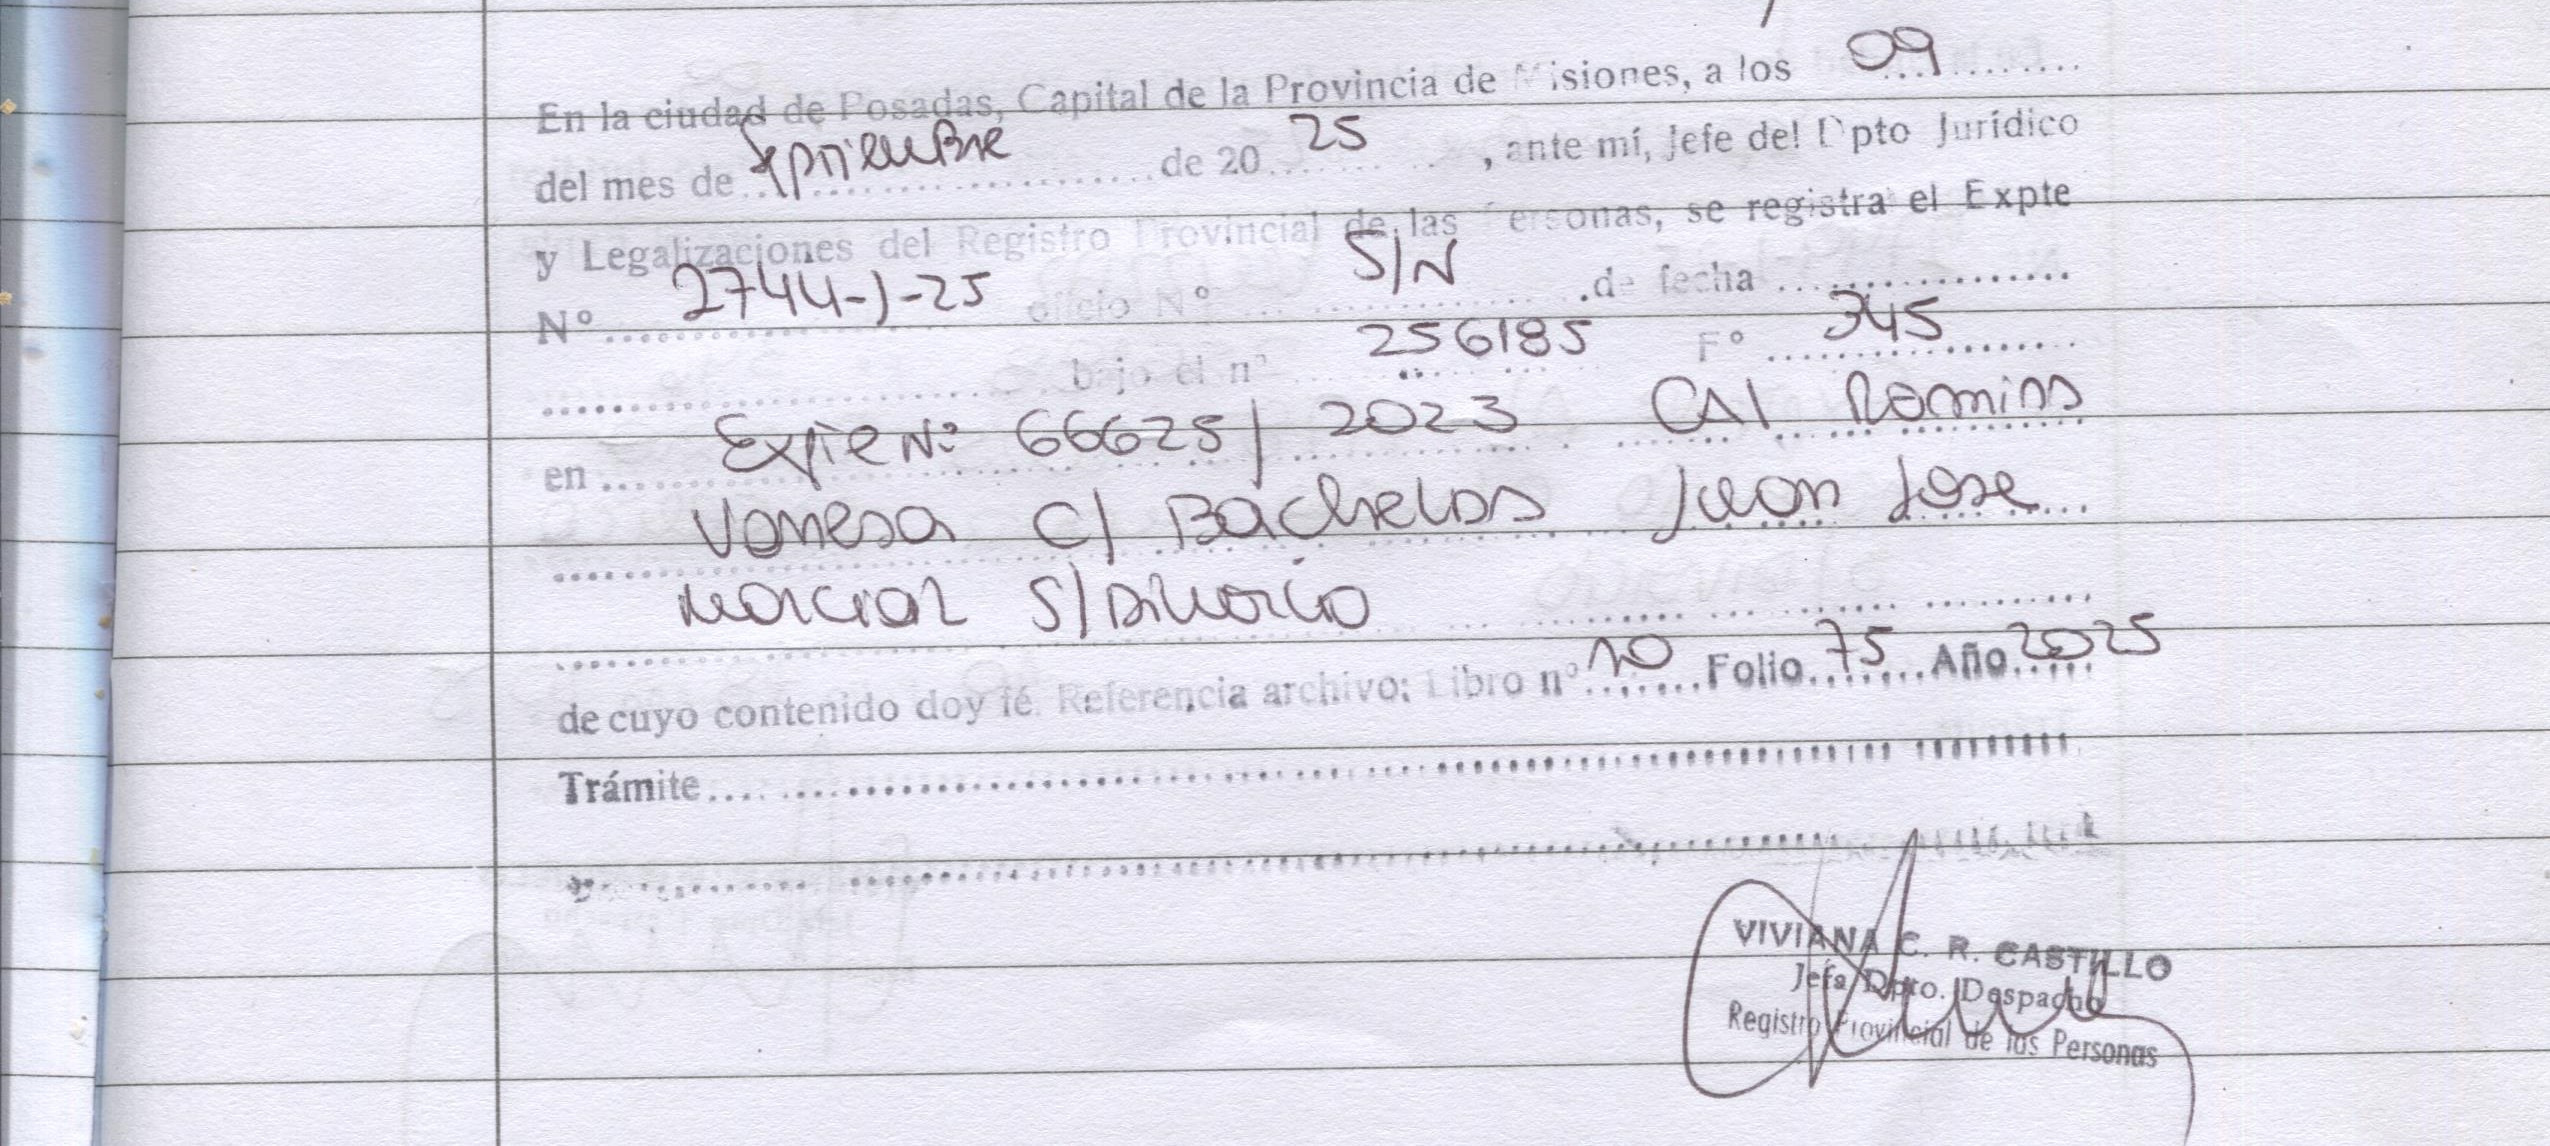 En la ciudad de Posadas, Capital de la Provincia de Misiones, a los 09
del mes de Septiembre de 20 25, ante mí, Jefe del Dpto Jurídico
y Legalizaciones del Registro Provincial de las Personas, se registra el Expte
N° 2744-J-25 oficio N° S/N de fecha
bajo el n° 256185 F° 345
en Expte N° 66625/2023 CAI Romina
Vanesa C/ Bachelas Juan Jose
Marcial S/Divorcio
de cuyo contenido doy fé. Referencia archivo: Libro n° 10 Folio 75 Año 2025
Trámite
VIVIANA C. R. CASTILLO
Jefa Dpto. Despacho
Registro Provincial de las Personas